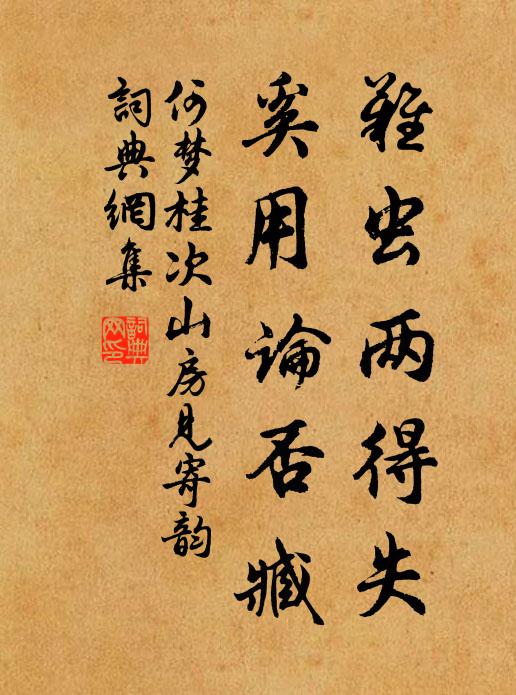 雞虫两得失
奚用論否臧
何梦桂次山房見寄韵
詞典網集
詞典
网印